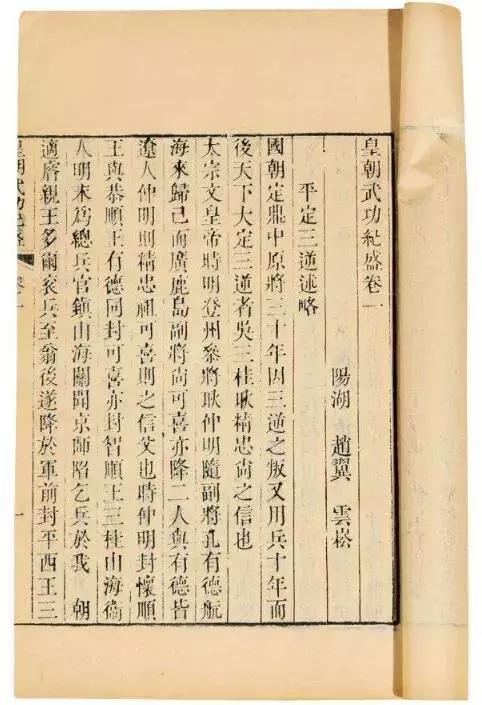 皇朝武功紀盛卷一
陽湖 趙翼 雲崧
平定三逆述略
國朝定鼎中原將三十年因三逆之叛又用兵十年而
後天下大定三逆者吳三桂耿精忠尚之信也
太宗文皇帝時明登州叅將耿仲明隨副將孔有德航
海來歸已而廣鹿島副將尚可喜亦降二人與有德皆
遼人仲明則精忠祖可喜則之信父也時仲明封懷順
王與恭順王有德同封可喜亦封智順王三桂山海衛
人明末爲總兵官鎮山海關聞京師陷乞兵於我 朝
適睿親王多爾袞兵至翁後遂降於軍前封平西王三
皇朝武功紀盛 卷一 一